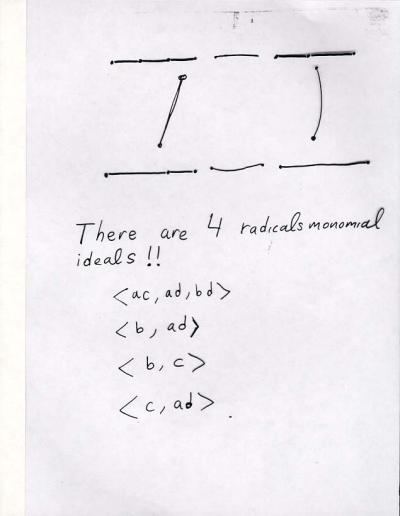 There are 4 radicals monomial
ideals !!
<ac, ad, bd>
<b, ad>
<b, c>
<c, ad> .